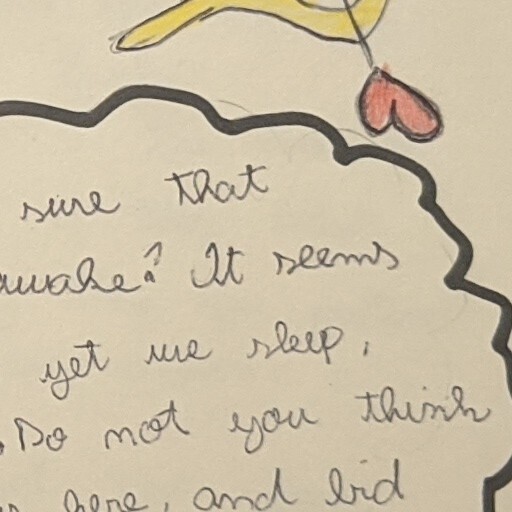 sure that
awake? It seems
yet we sleep,
Do not you think
here, and bid